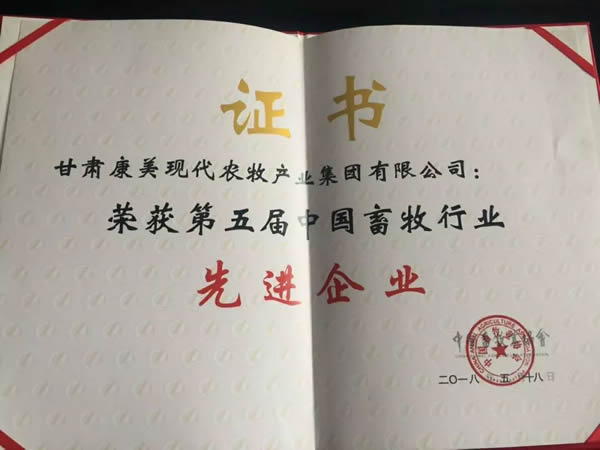 证书
甘肃康美现代农牧产业集团有限公司：
荣获第五届中国畜牧行业
先进企业
中国畜牧业协会
CHINA ANIMAL AGRICULTURE ASSOCIATION
二〇一八 五 十八日